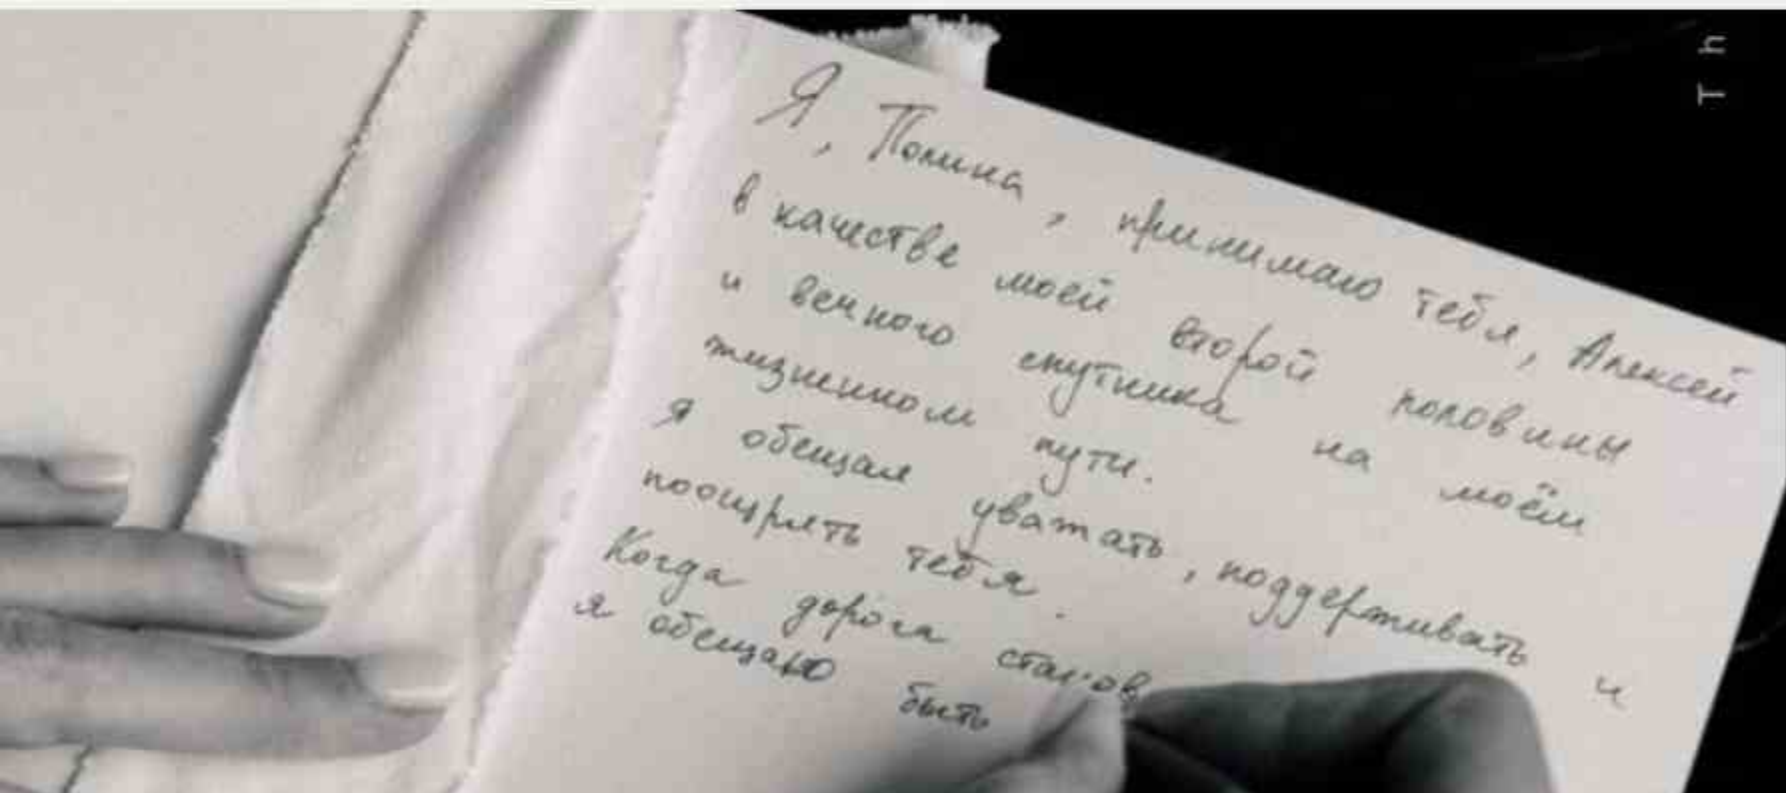 Я, Полина, принимаю тебя, Алексей
в качестве моей второй половины
и вечного спутника на моём
жизненном пути.
Я обещая уважать, поддерживать и
поощрять тебя.
Когда дорога станов
я обещаю быть
Th